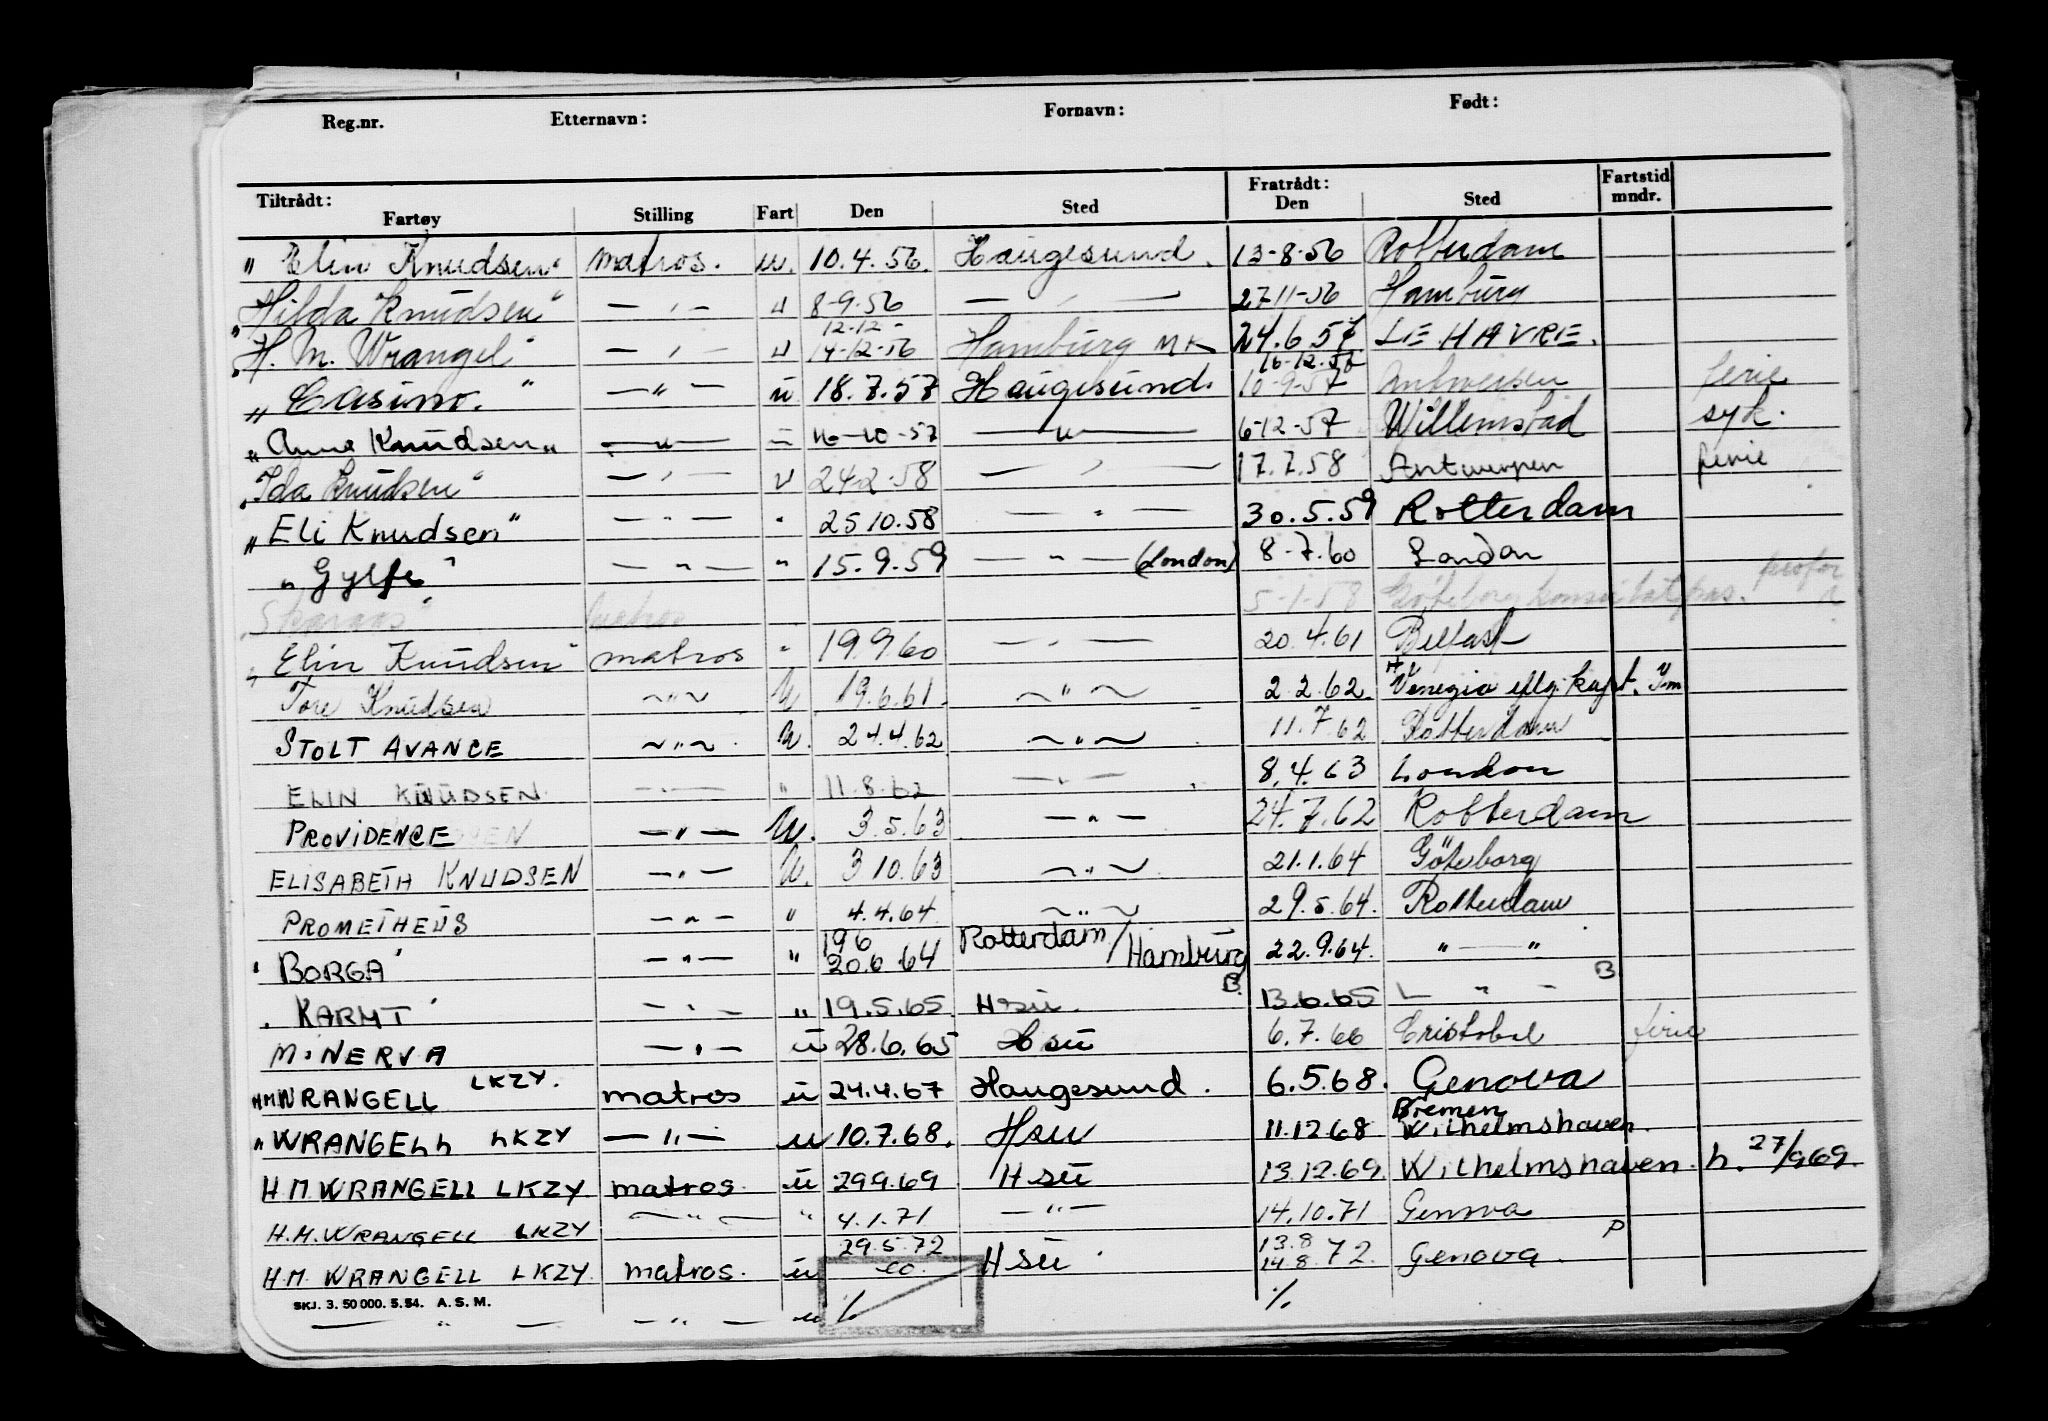 Reg.nr. Etternavn: Fornavn: Født:
Tiltrådt: Fratrådt: Fartstid
Fartøy Stilling Fart Den Sted Den Sted mndr.
"Elin Knudsen" matros. u. 10.4.56. Haugesund. 13-8-56 Rotterdam
"Hilda Knudsen" — " — u 8-9-56 — " — 27-11-56 Hamburg
12-12-
"H. M. Wrangel" — " — u 14-12-56 Hamburg MK 24.6.57 LE HAVRE.
16-12-56
"Casino." — " — u 18.7.57 Haugesund. 10-9-57 Antwerpen ferie
"Anna Knudsen" — " — u 16-10-57 — " — 6-12-57 Willemstad syk.
"Ida Knudsen" — " — u 24-2-58 — " — 17.7.58 Antwerpen ferie
"Eli Knudsen" — " — " 25 10.58 — " — 30.5.59 Rotterdam
"Gylfe" — " — " 15.9.59 — " — (London) 8-7.60 London
matros 5-1-58 Göteborg
"Elin Knudsen" matros " 19.9.60 — " — 20.4.61 Belfast
Tore Knudsen — " — u 19.6.61. — " — 2.2.62. Venezia eftg. kapt.
STOLT AVANCE — " — u. 24.4.62 — " — 11.7.62 Rotterdam
ELIN KNUDSEN — " — " 11.8.62 — " — 8.4.63 London
PROVIDENCE — " — u. 3.5.63 — " — 24.7.62 Rotterdam
ELISABETH KNUDSEN — " — u. 3 10.63 — " — 21.1.64 Göteborg
PROMETHEUS — " — " 4.4.64. — " — 29.5.64. Rotterdam
196
"BORGA" — " — " 20.6.64 Rotterdam/Hamburg 22.9.64. " — "
B. B
"KARMT" — " — " 19.5.65 Hsu. 13.6.65 — " —
MINERVA — " — u 28.6.65 Hsu 6.7.66 Cristobal ferie
HM WRANGELL LKZY. matros u 24.4.67 Haugesund. 6.5.68. Genova
Bremen
" WRANGELL LKZY — " — u 10.7.68. Hsu 11.12 68 Wilhelmshaven.
H M WRANGELL LKZY. matros. u 29 9.69 Hsu 13.12.69. Wilhelmshaven. h. 27/9 69.
H.M. WRANGELL LKZY — " — " 4.1.71 — " — 14.10.71 Genova
29.5.72 13.8 P
H.M. WRANGELL LKZY. matros. u Hsu 14.8 72. Genova.
SKJ. 3. 50 000. 5. 54. A. S. M.
— " — — " — u % %